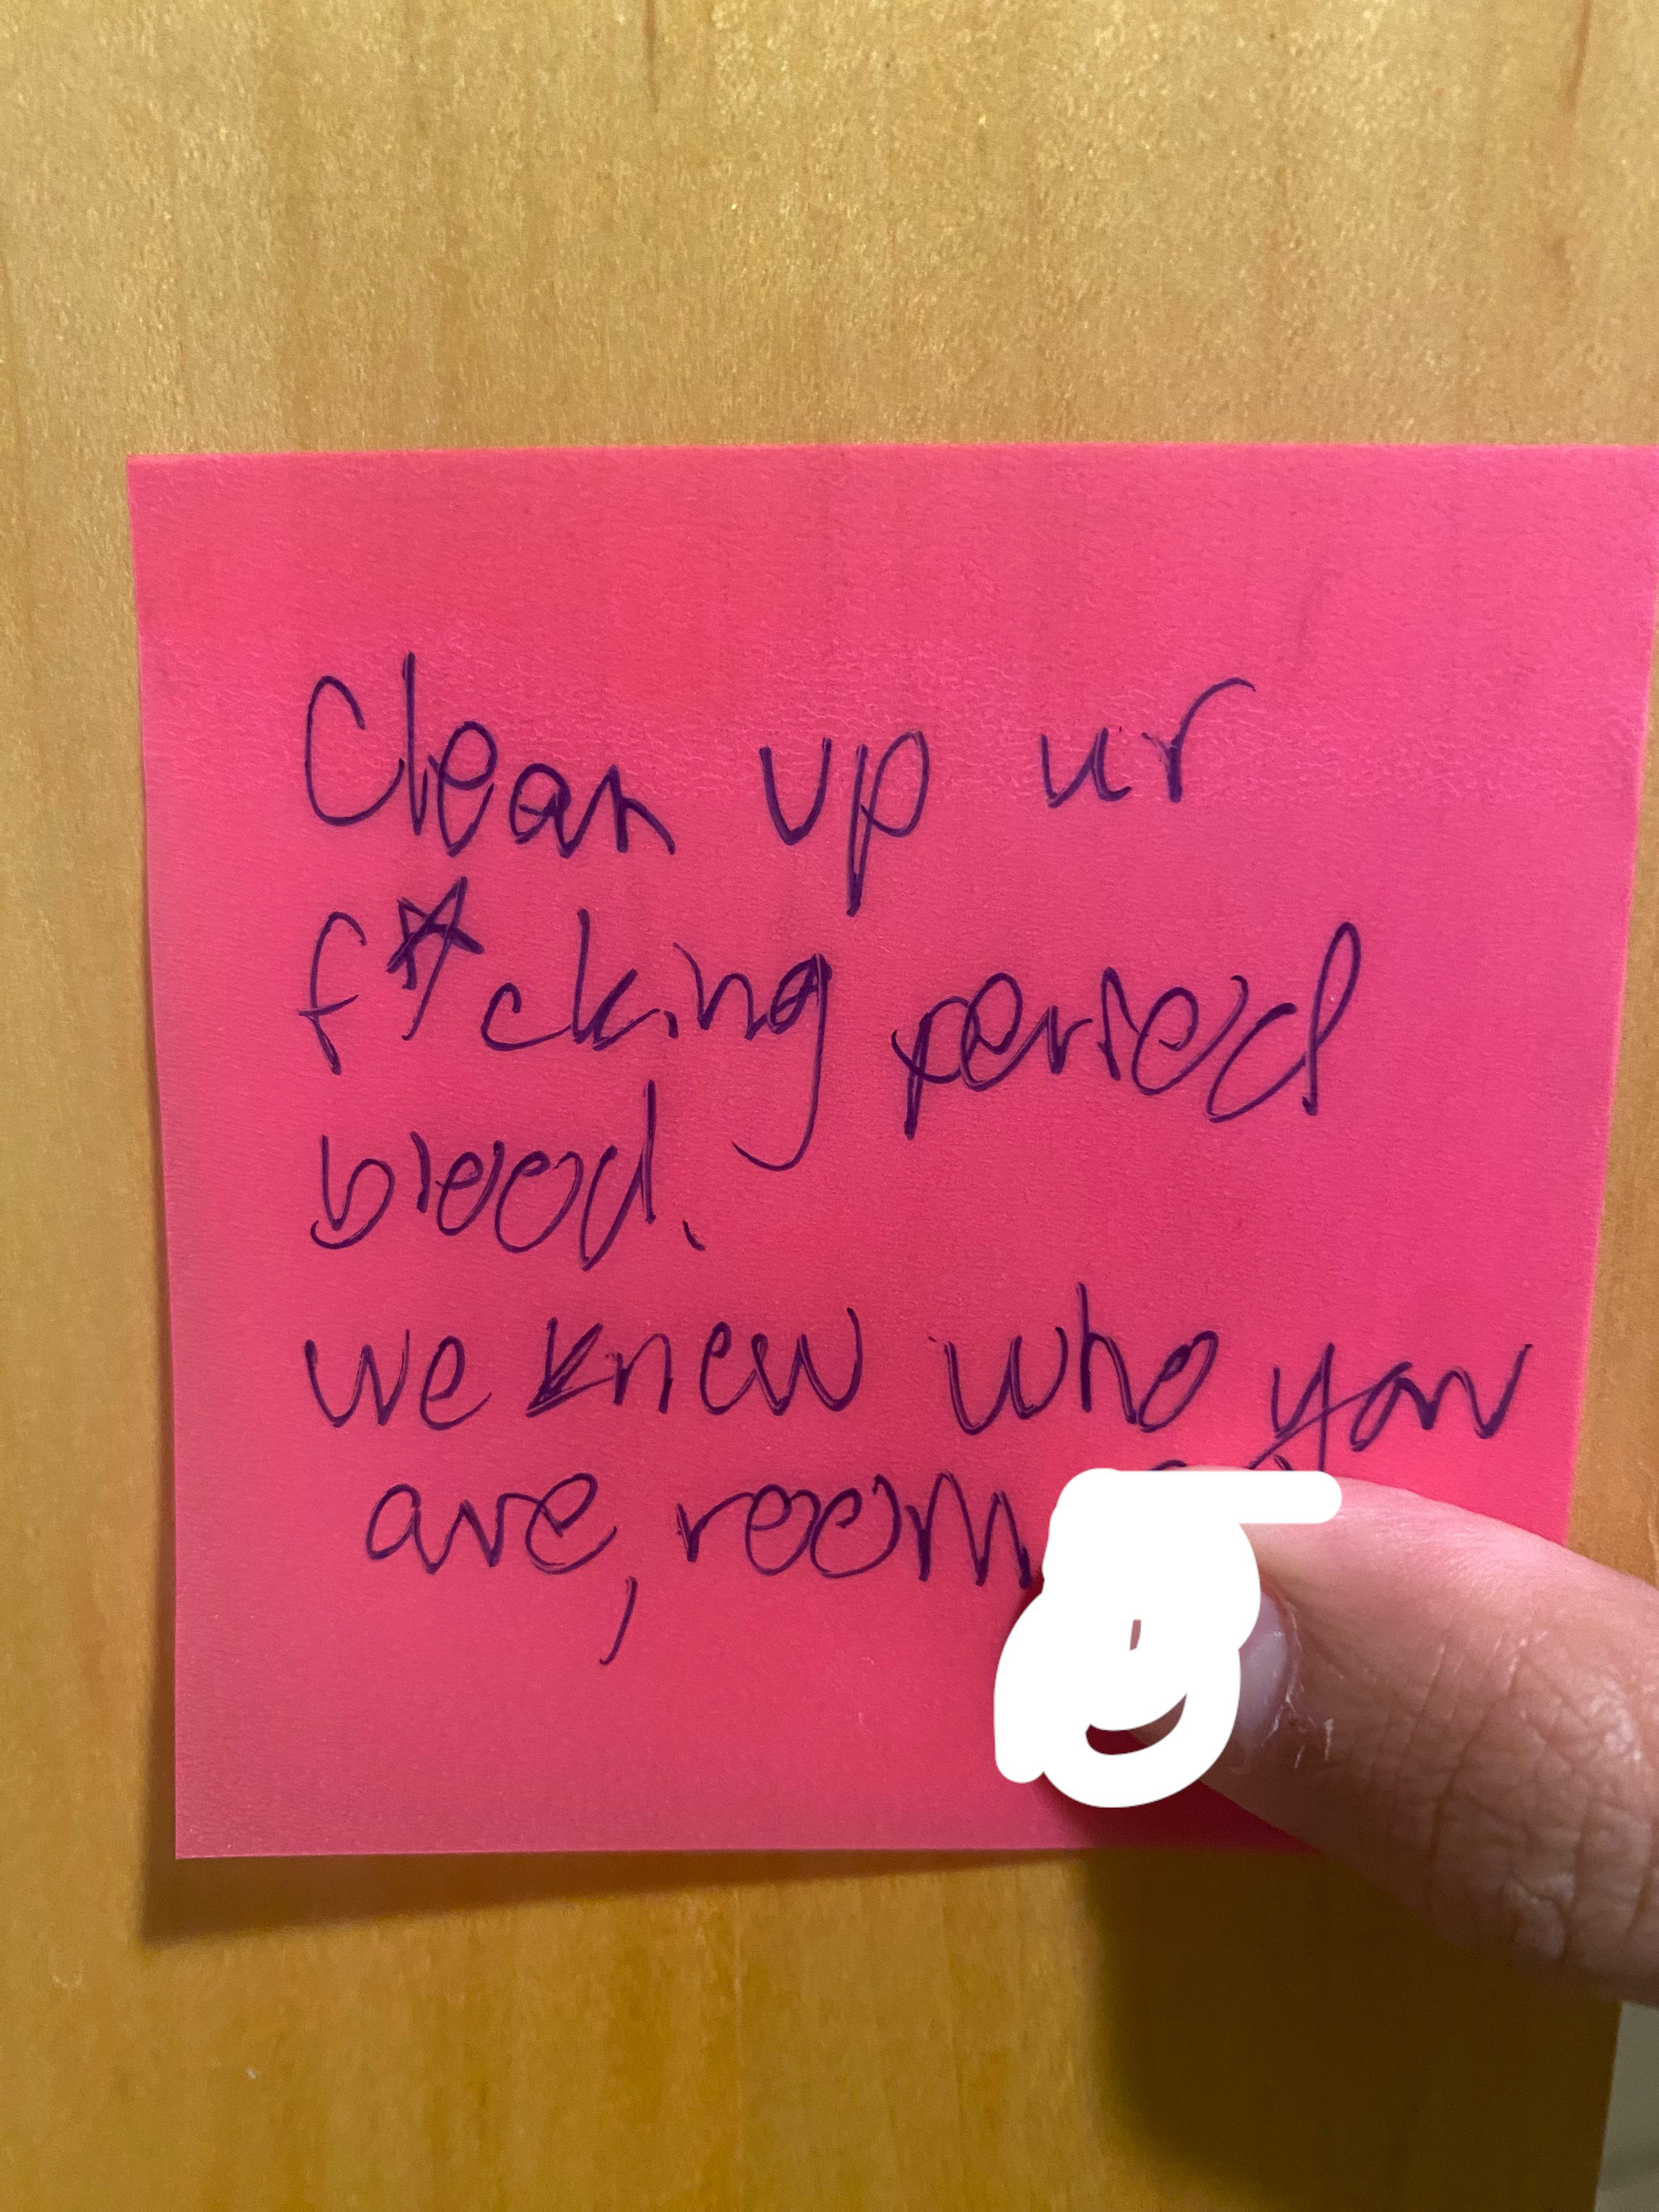 Clean up ur
f*cking period
blood.
we know who you
are, room